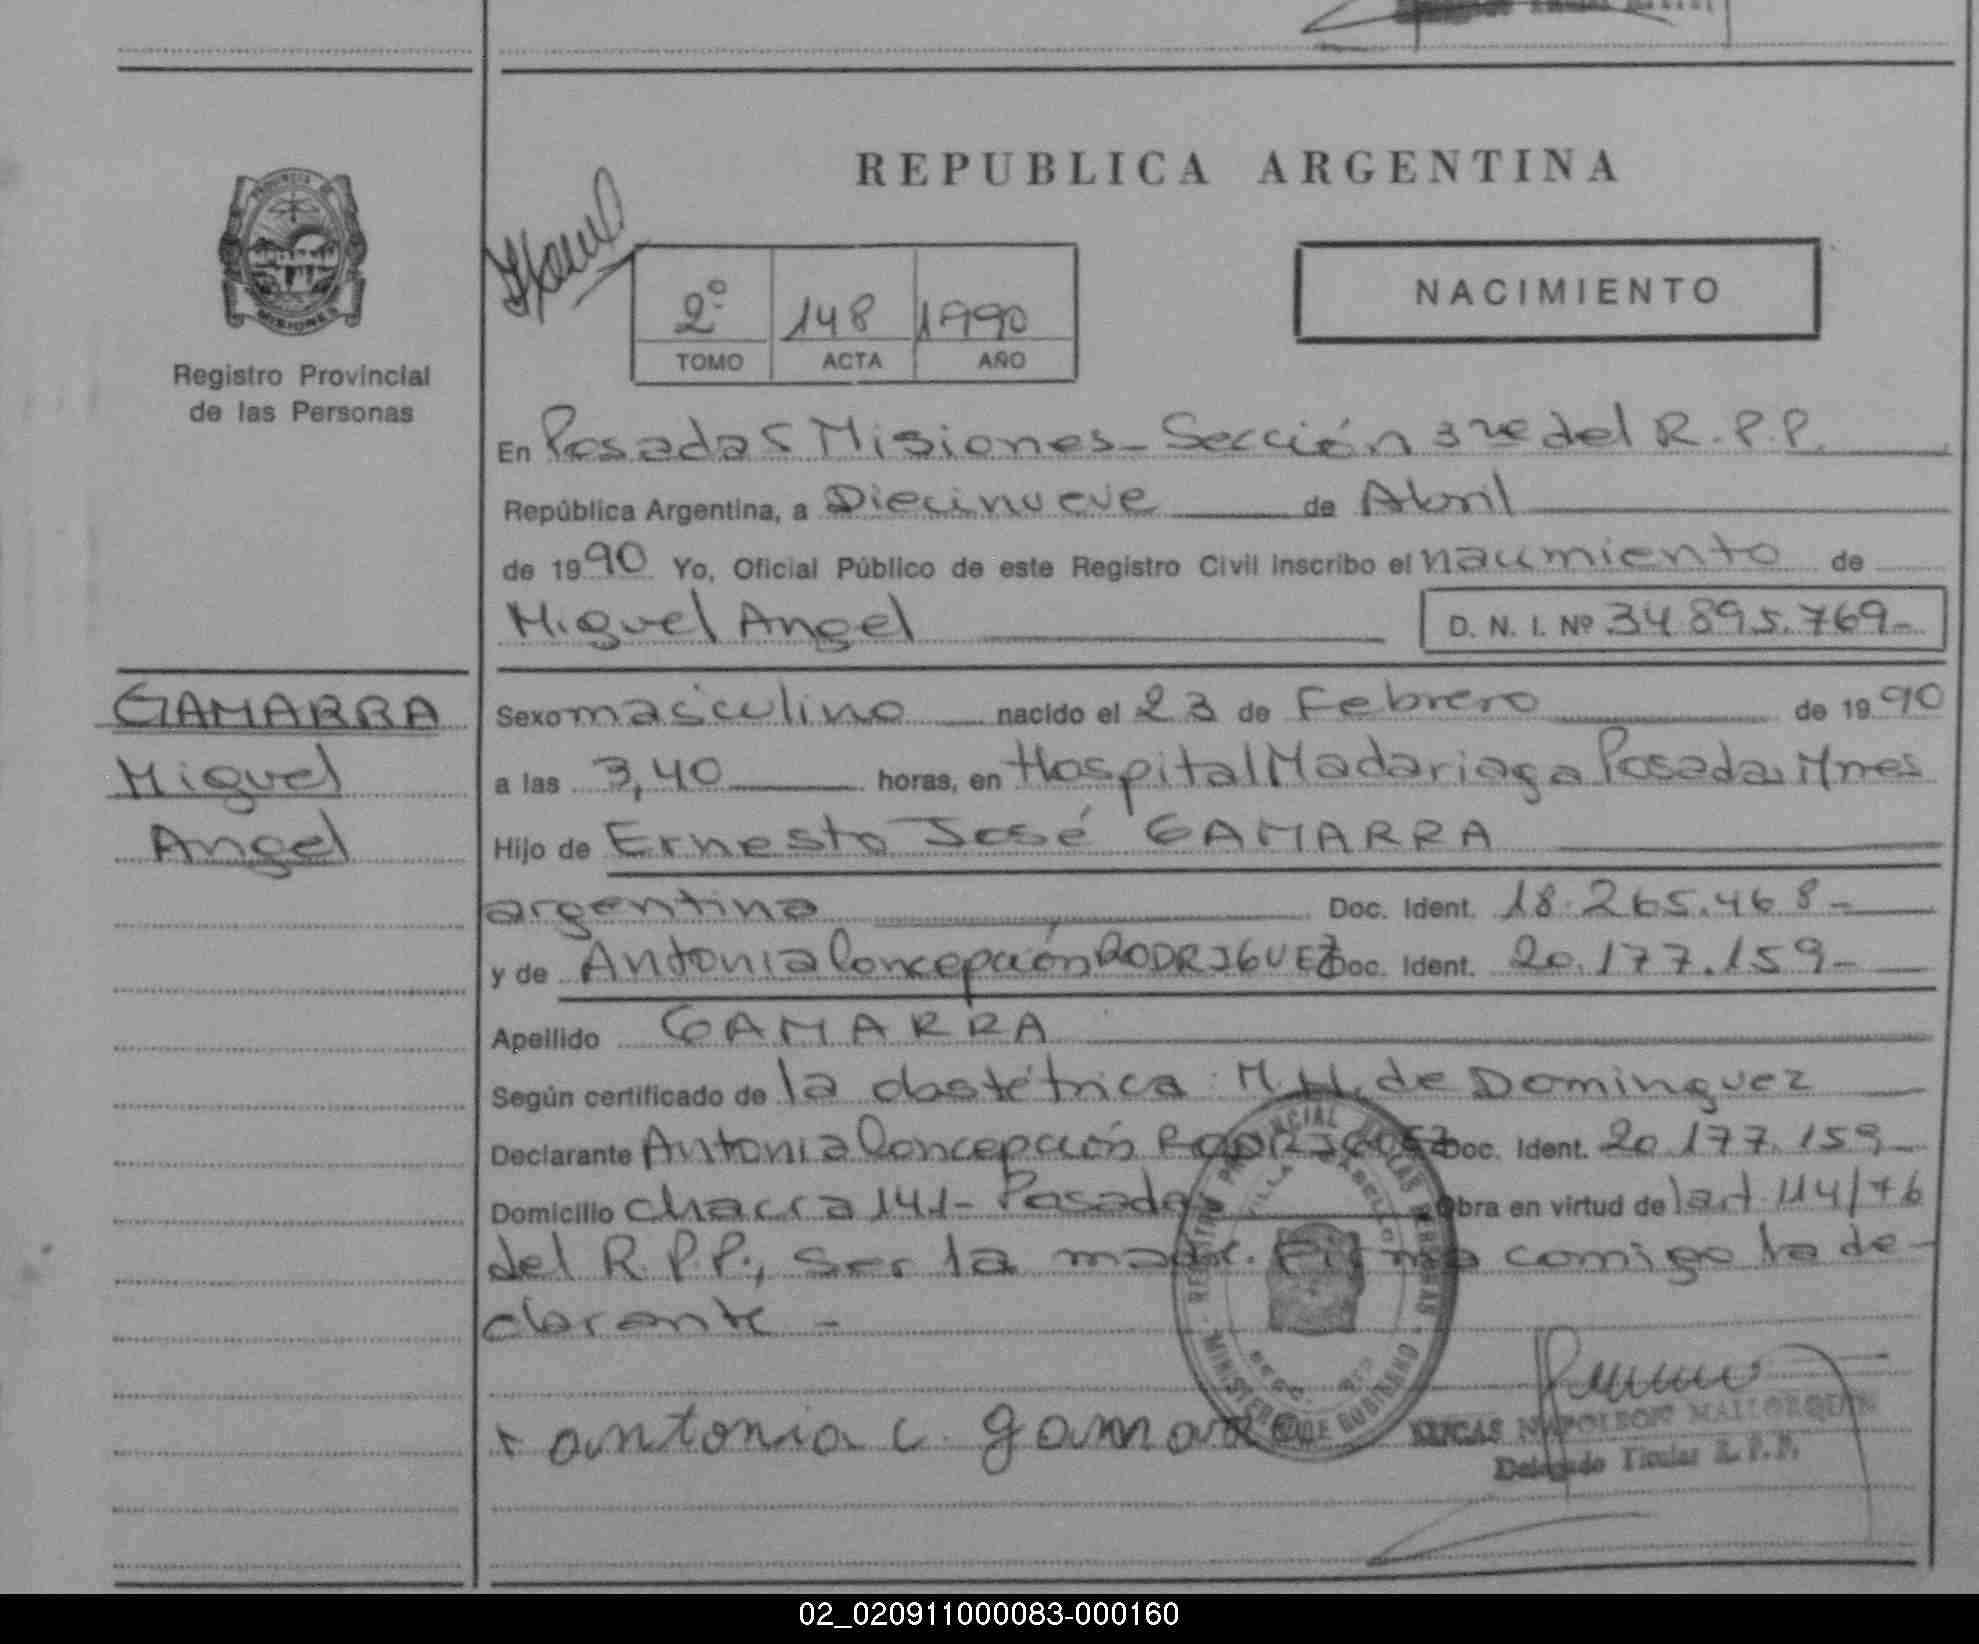 REPUBLICA ARGENTINA
PROVINCIA DE
MISIONES
Registro Provincial
de las Personas
2º 148 1990
TOMO ACTA AÑO
NACIMIENTO
En Posadas Misiones - Sección 3ra del R.P.P.
República Argentina, a Diecinueve de Abril
de 1990 Yo, Oficial Público de este Registro Civil inscribo el nacimiento de
Miguel Angel D. N. I. Nº 34.895.769-
GAMARRA
Miguel
Angel
Sexo masculino nacido el 23 de Febrero de 1990
a las 3,40 horas, en Hospital Madariaga Posadas Mnes
Hijo de Ernesto José GAMARRA
argentina Doc. Ident. 18.265.468-
y de Antonia Concepción RODRIGUEZ Doc. Ident. 20.177.159-
Apellido GAMARRA
Según certificado de la obstétrica M.N. de Dominguez
Declarante Antonia Concepción RODRIGUEZ Doc. Ident. 20.177.159-
Domicilio chacra 141- Posadas Obra en virtud de lart. 114/76
del R.P.P., ser la madre. Firma comigo la de-
clarante -
antonia c. gamarra
LUCAS NAPOLEON MALLORQUIN
Delegado Titular R.P.P.
02_020911000083-000160